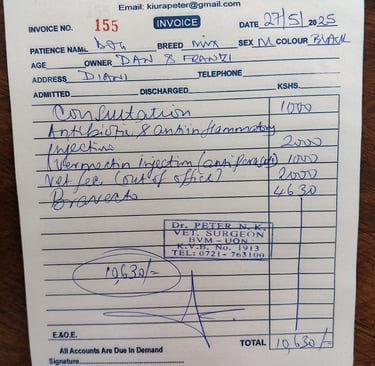 Email: kiurapeter@gmail.com
INVOICE NO. 155 INVOICE DATE 27/5/2025
PATIENCE NAME DOG BREED MIX SEX M COLOUR BLACK
AGE OWNER DAN & FRANZI
ADDRESS DIANI TELEPHONE
ADMITTED DISCHARGED KSHS.
Consultation 1000
Antibiotic & antiinflammatory
injection 2000
Ivermectin injection (antiparasite) 1000
Vet fee (out of office) 2000
Bravecto 4630
Dr. PETER N. K.
VET. SURGEON
BVM - UON
K.V.B. No. 1913
TEL: 0721- 763100
10,630/=
E.&O.E. TOTAL 10,630/=
All Accounts Are Due In Demand
Signature